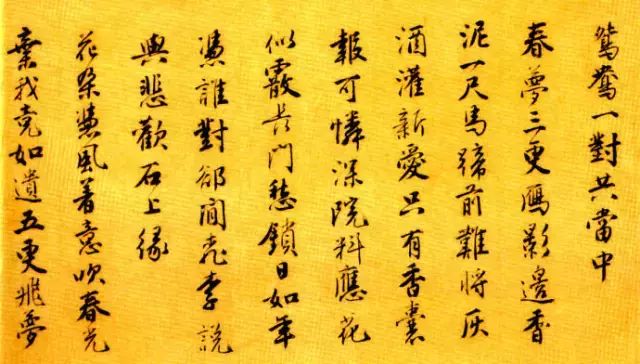 鴛鴦一對共當中
春夢三更鴈影邊香
泥一尺馬蹄前難將灰
酒灌新愛只有香囊
報可憐深院料應花
似霰長門愁鎖日如年
憑誰對卻閒花李說
與悲歡石上緣
花朶憑風着意吹春光
棄我竟如遺五更飛夢